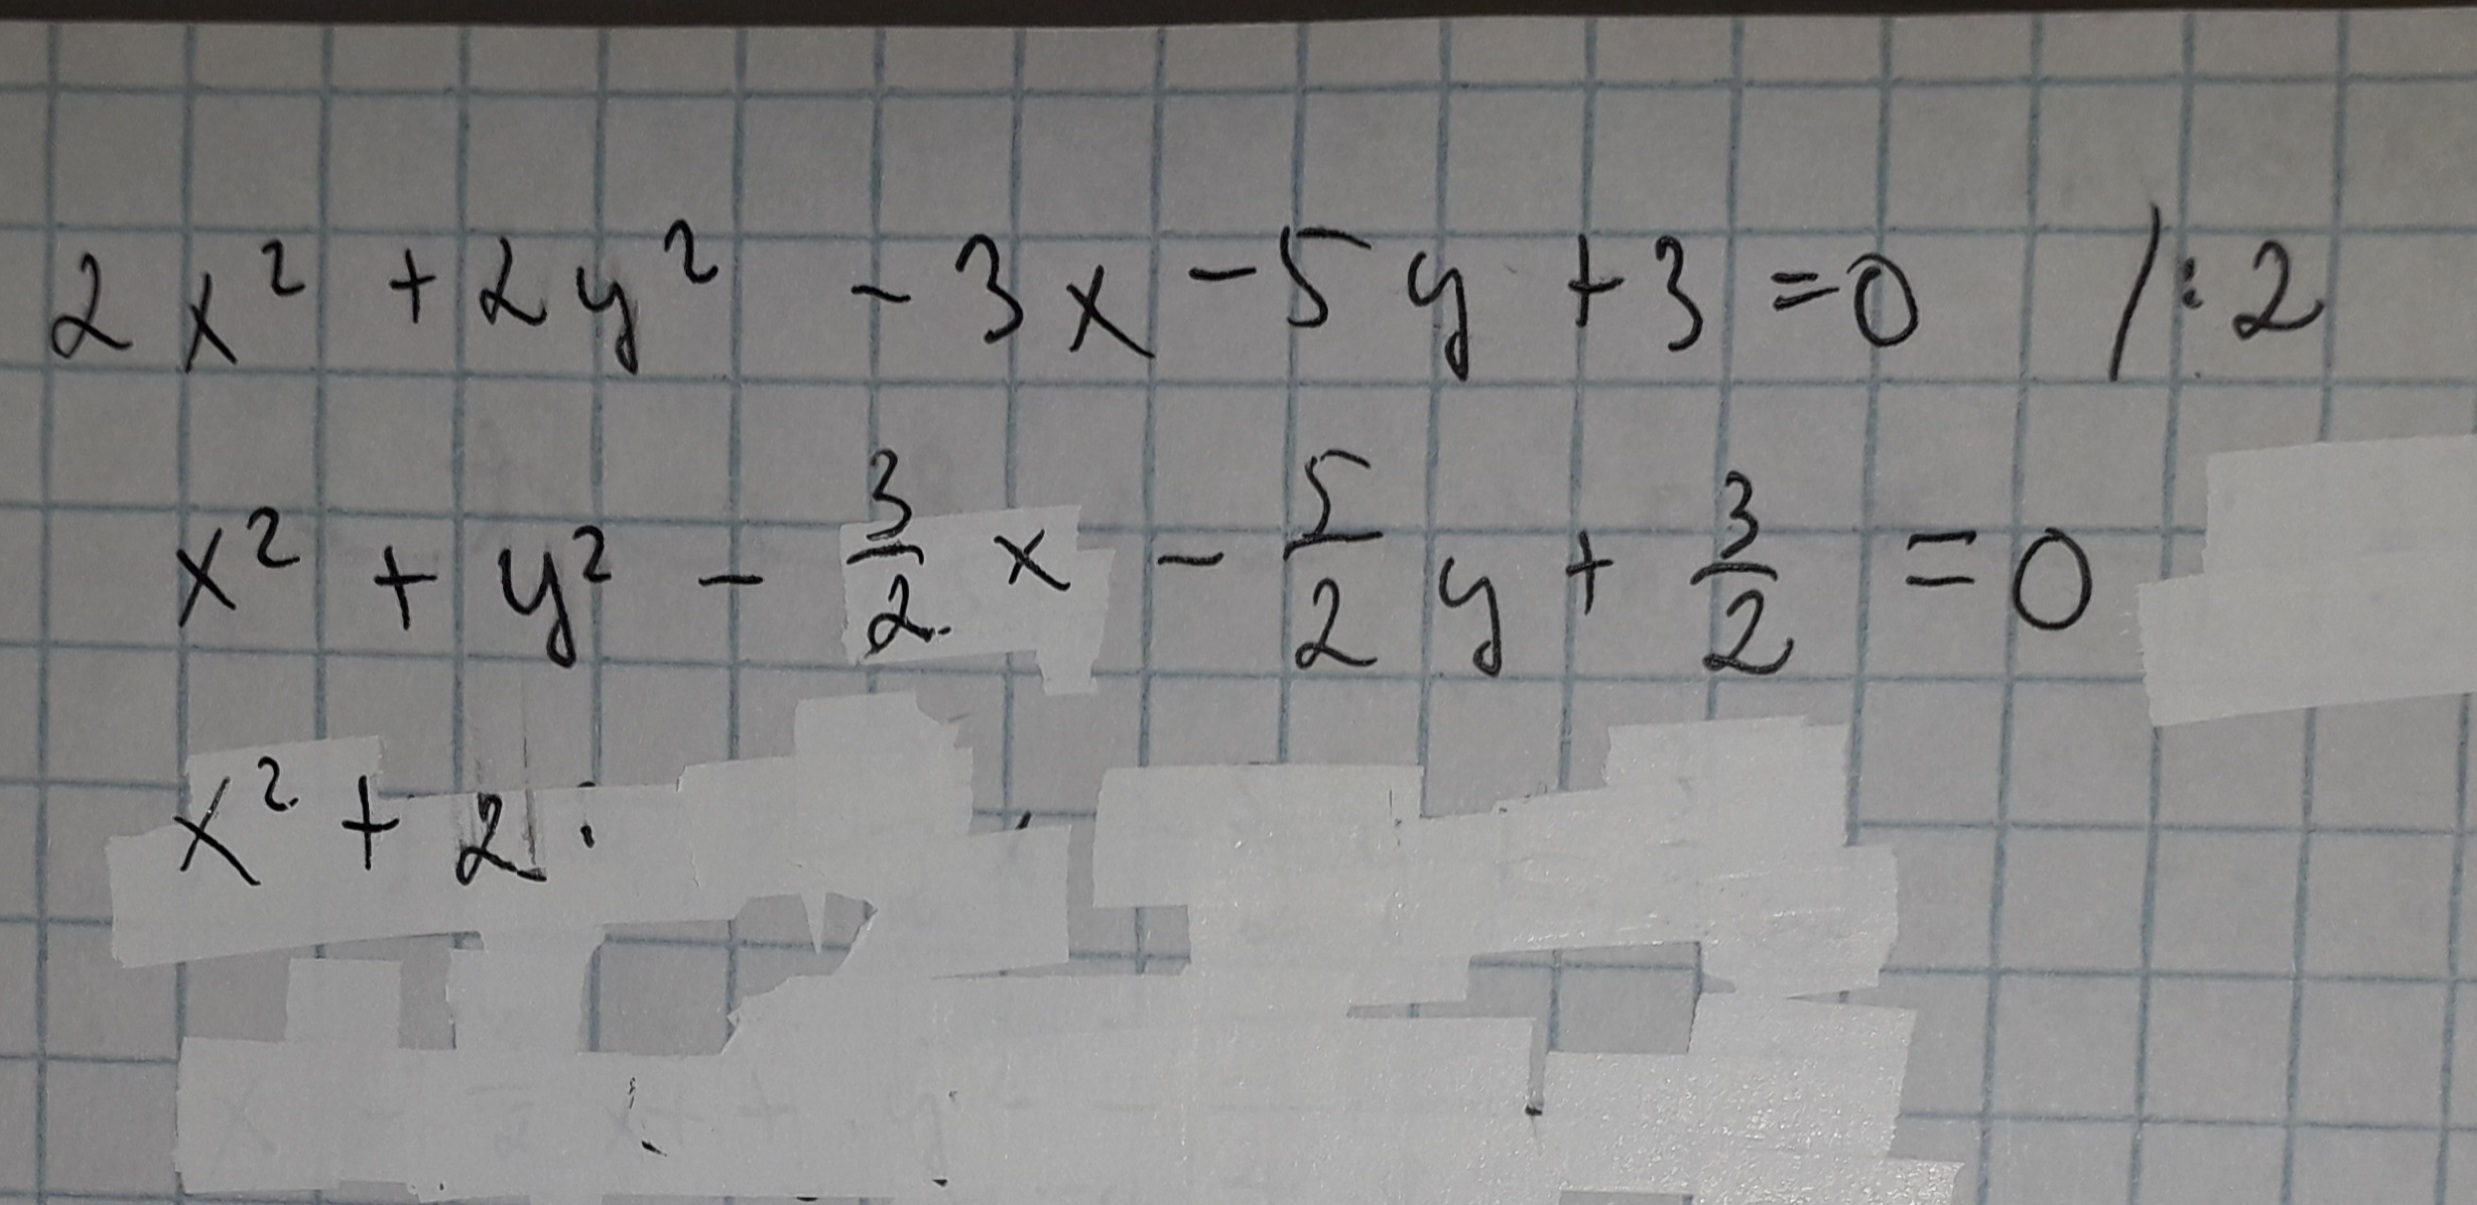 2x² + 2y² - 3x - 5y + 3 = 0 /:2
x² + y² - 3/2 x - 5/2 y + 3/2 = 0
x² + 2 ·